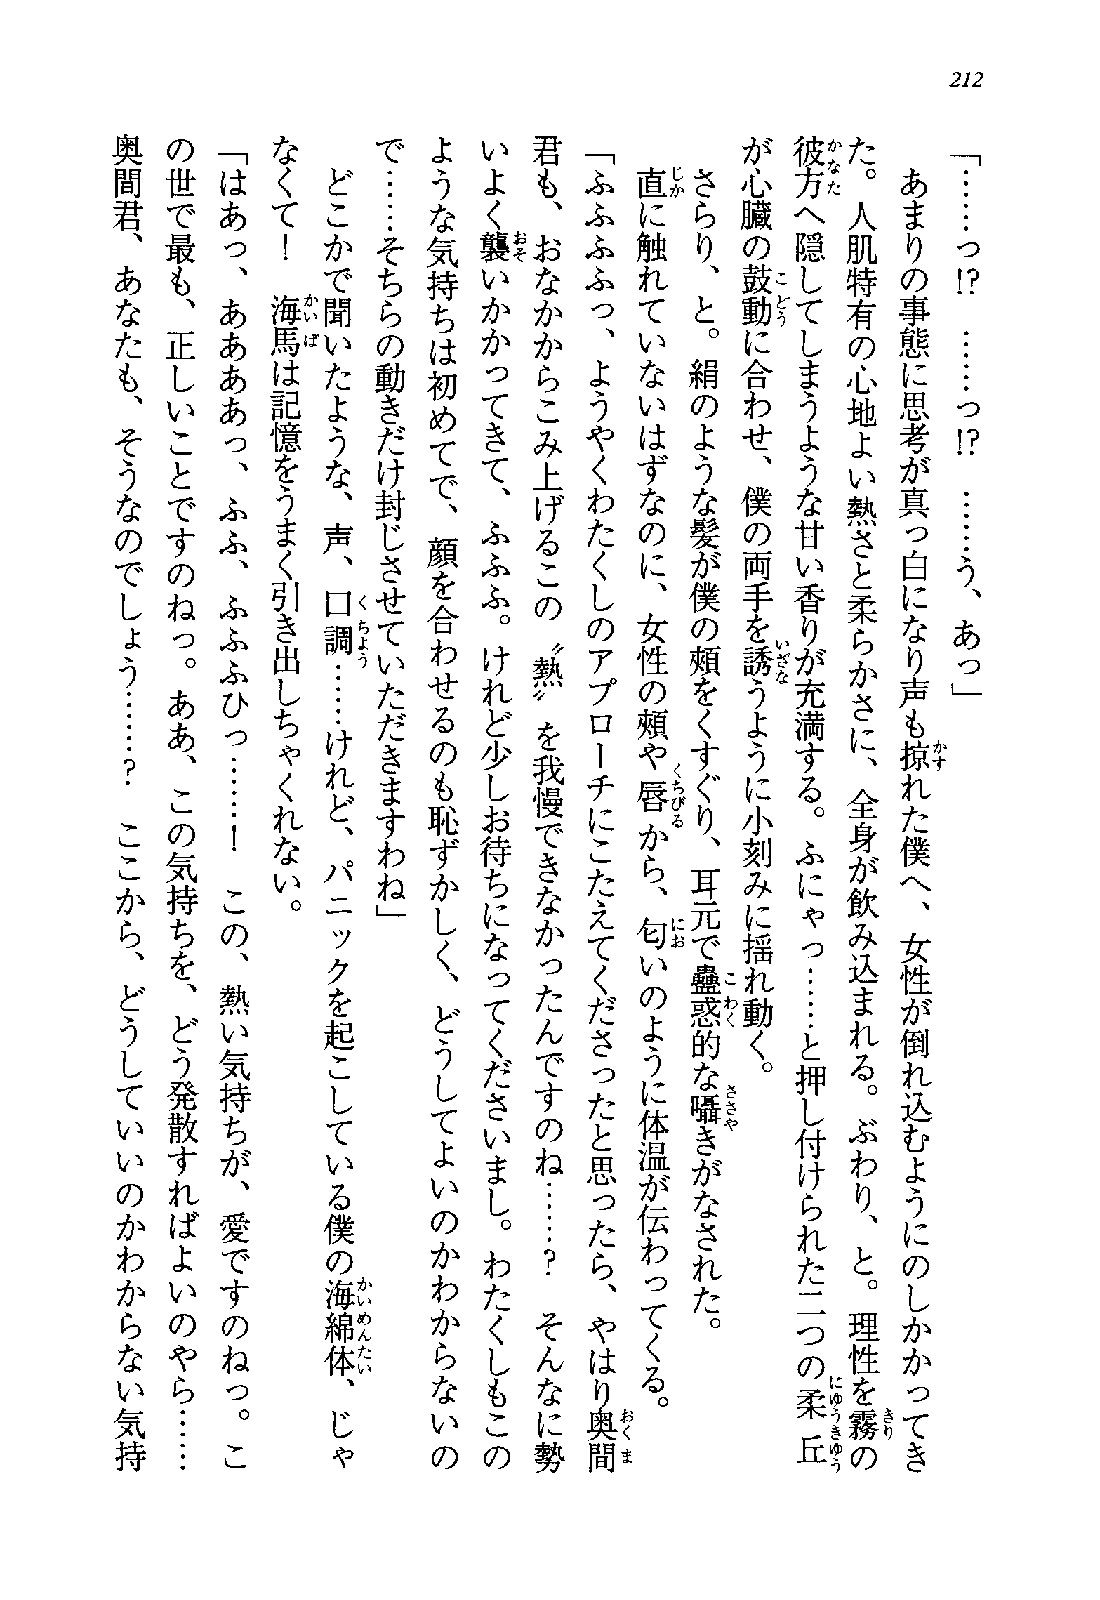 212
「……っ!?　……っ!?　……う、あっ」
　あまりの事態に思考が真っ白になり声も掠れた僕へ、女性が倒れ込むようにのしかかってき
た。人肌特有の心地よい熱さと柔らかさに、全身が飲み込まれる。ぶわり、と。理性を霧の
彼方へ隠してしまうような甘い香りが充満する。ふにゃっ……と押し付けられた二つの柔丘
が心臓の鼓動に合わせ、僕の両手を誘うように小刻みに揺れ動く。
　さらり、と。絹のような髪が僕の頰をくすぐり、耳元で蠱惑的な囁きがなされた。
　直に触れていないはずなのに、女性の頰や唇から、匂いのように体温が伝わってくる。
「ふふふふっ、ようやくわたくしのアプローチにこたえてくださったと思ったら、やはり奥間
君も、おなかからこみ上げるこの〝熱〟を我慢できなかったんですのね……?　そんなに勢
いよく襲いかかってきて、ふふふ。けれど少しお待ちになってくださいまし。わたくしもこの
ような気持ちは初めてで、顔を合わせるのも恥ずかしく、どうしてよいのかわからないの
で……そちらの動きだけ封じさせていただきますわね」
　どこかで聞いたような、声、口調……けれど、パニックを起こしている僕の海綿体、じゃ
なくて!　海馬は記憶をうまく引き出しちゃくれない。
「はあっ、あああっ、ふふ、ふふふひっ……!　この、熱い気持ちが、愛ですのねっ。こ
の世で最も、正しいことですのねっ。ああ、この気持ちを、どう発散すればよいのやら……
奥間君、あなたも、そうなのでしょう……?　ここから、どうしていいのかわからない気持